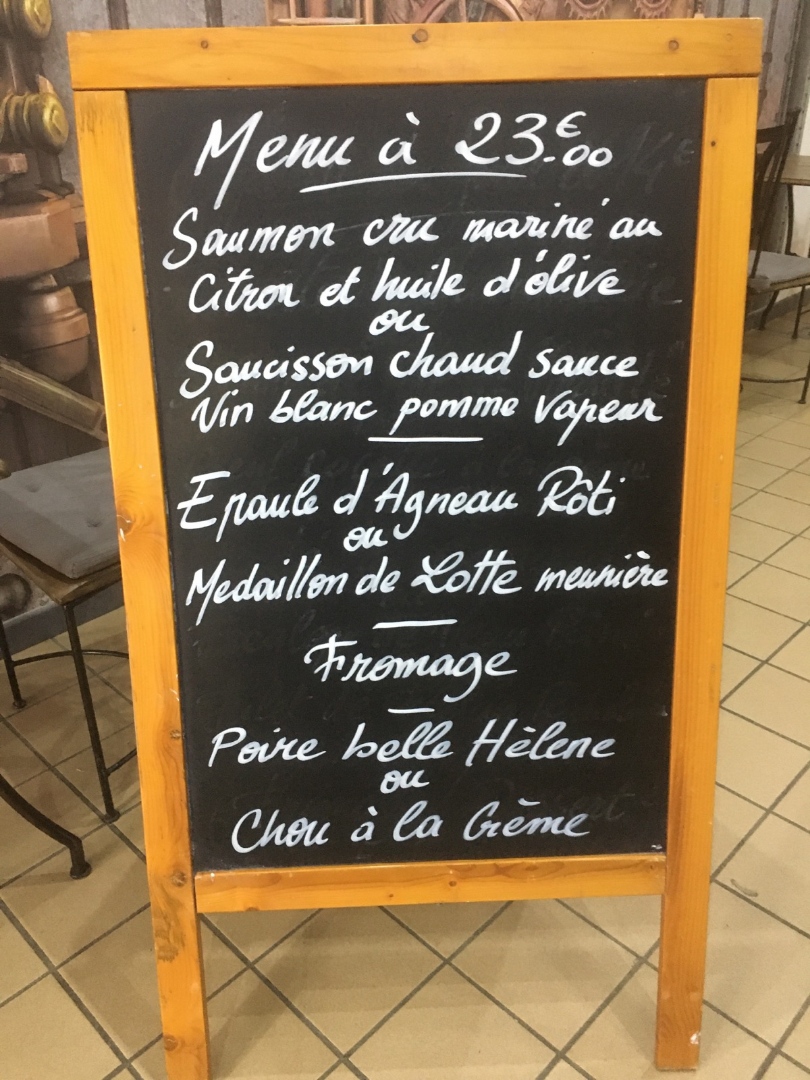 Menu à 23.€00
Saumon cru mariné au
Citron et huile d'olive
ou
Saucisson chaud sauce
Vin blanc pomme vapeur
Epaule d'Agneau Rôti
ou
Medaillon de Lotte meunière
Fromage
Poire belle Hèlene
ou
Chou à la Crème